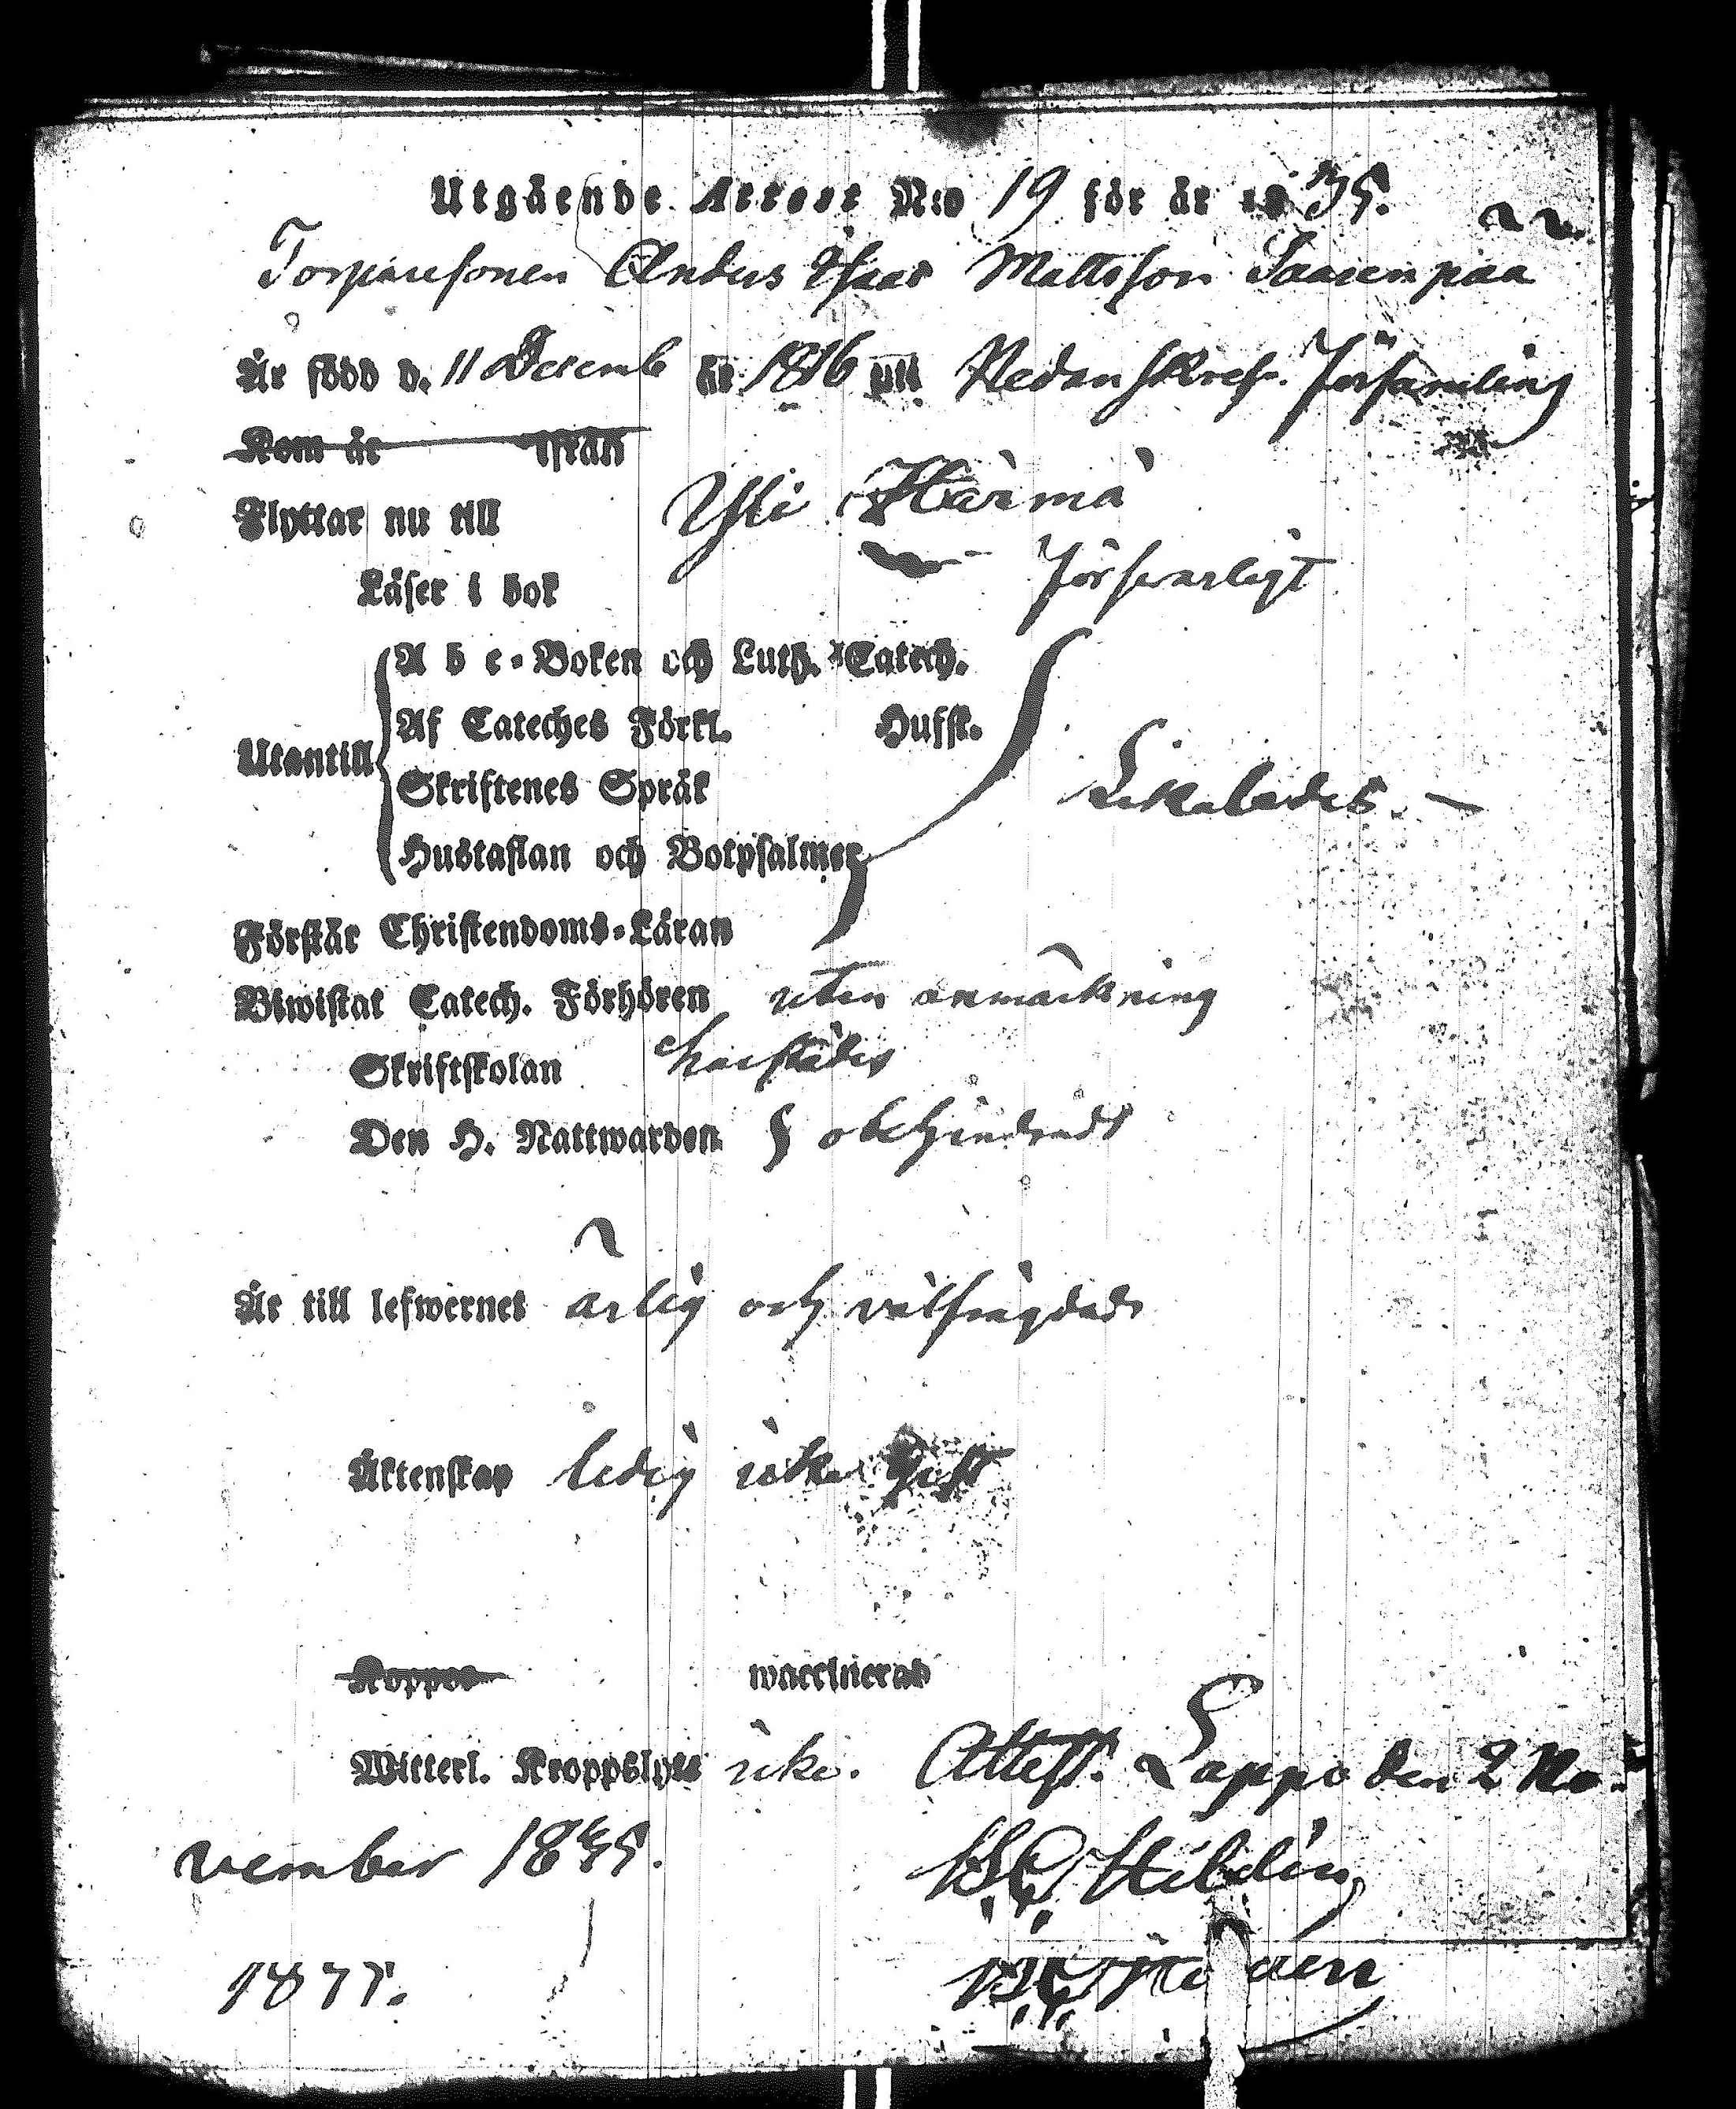 Utgående Attest N:o 19 för år 1835.
Torparesonen Anders Isaac Mattsson Saarenpää
Är född d. 11 Decemb år 1816 uti Nedanskref. Församling
Kom år ifrån
Flyttar nu till Yli Härmä
Läser i bok Försvarligt
A b c-Boken och Luth. Catech.
Af Cateches Förkl. Hufst.
Utantill Likaledes.
Skriftenes Språk
Hustaflan och Botpsalmer
Förstår Christendoms-Läran
Biwistat Catech. Förhören utan anmärkning
Skriftskolan härstädes
Den H. Nattwarden obehindradt
Är till lefwernet ärlig och välfrägdad
Äktenskap ledig icke gift
Koppor waccinerad
Witterl. Kroppslyte icke. Attest. Lappo den 2 No-
vember 1835. Hildén